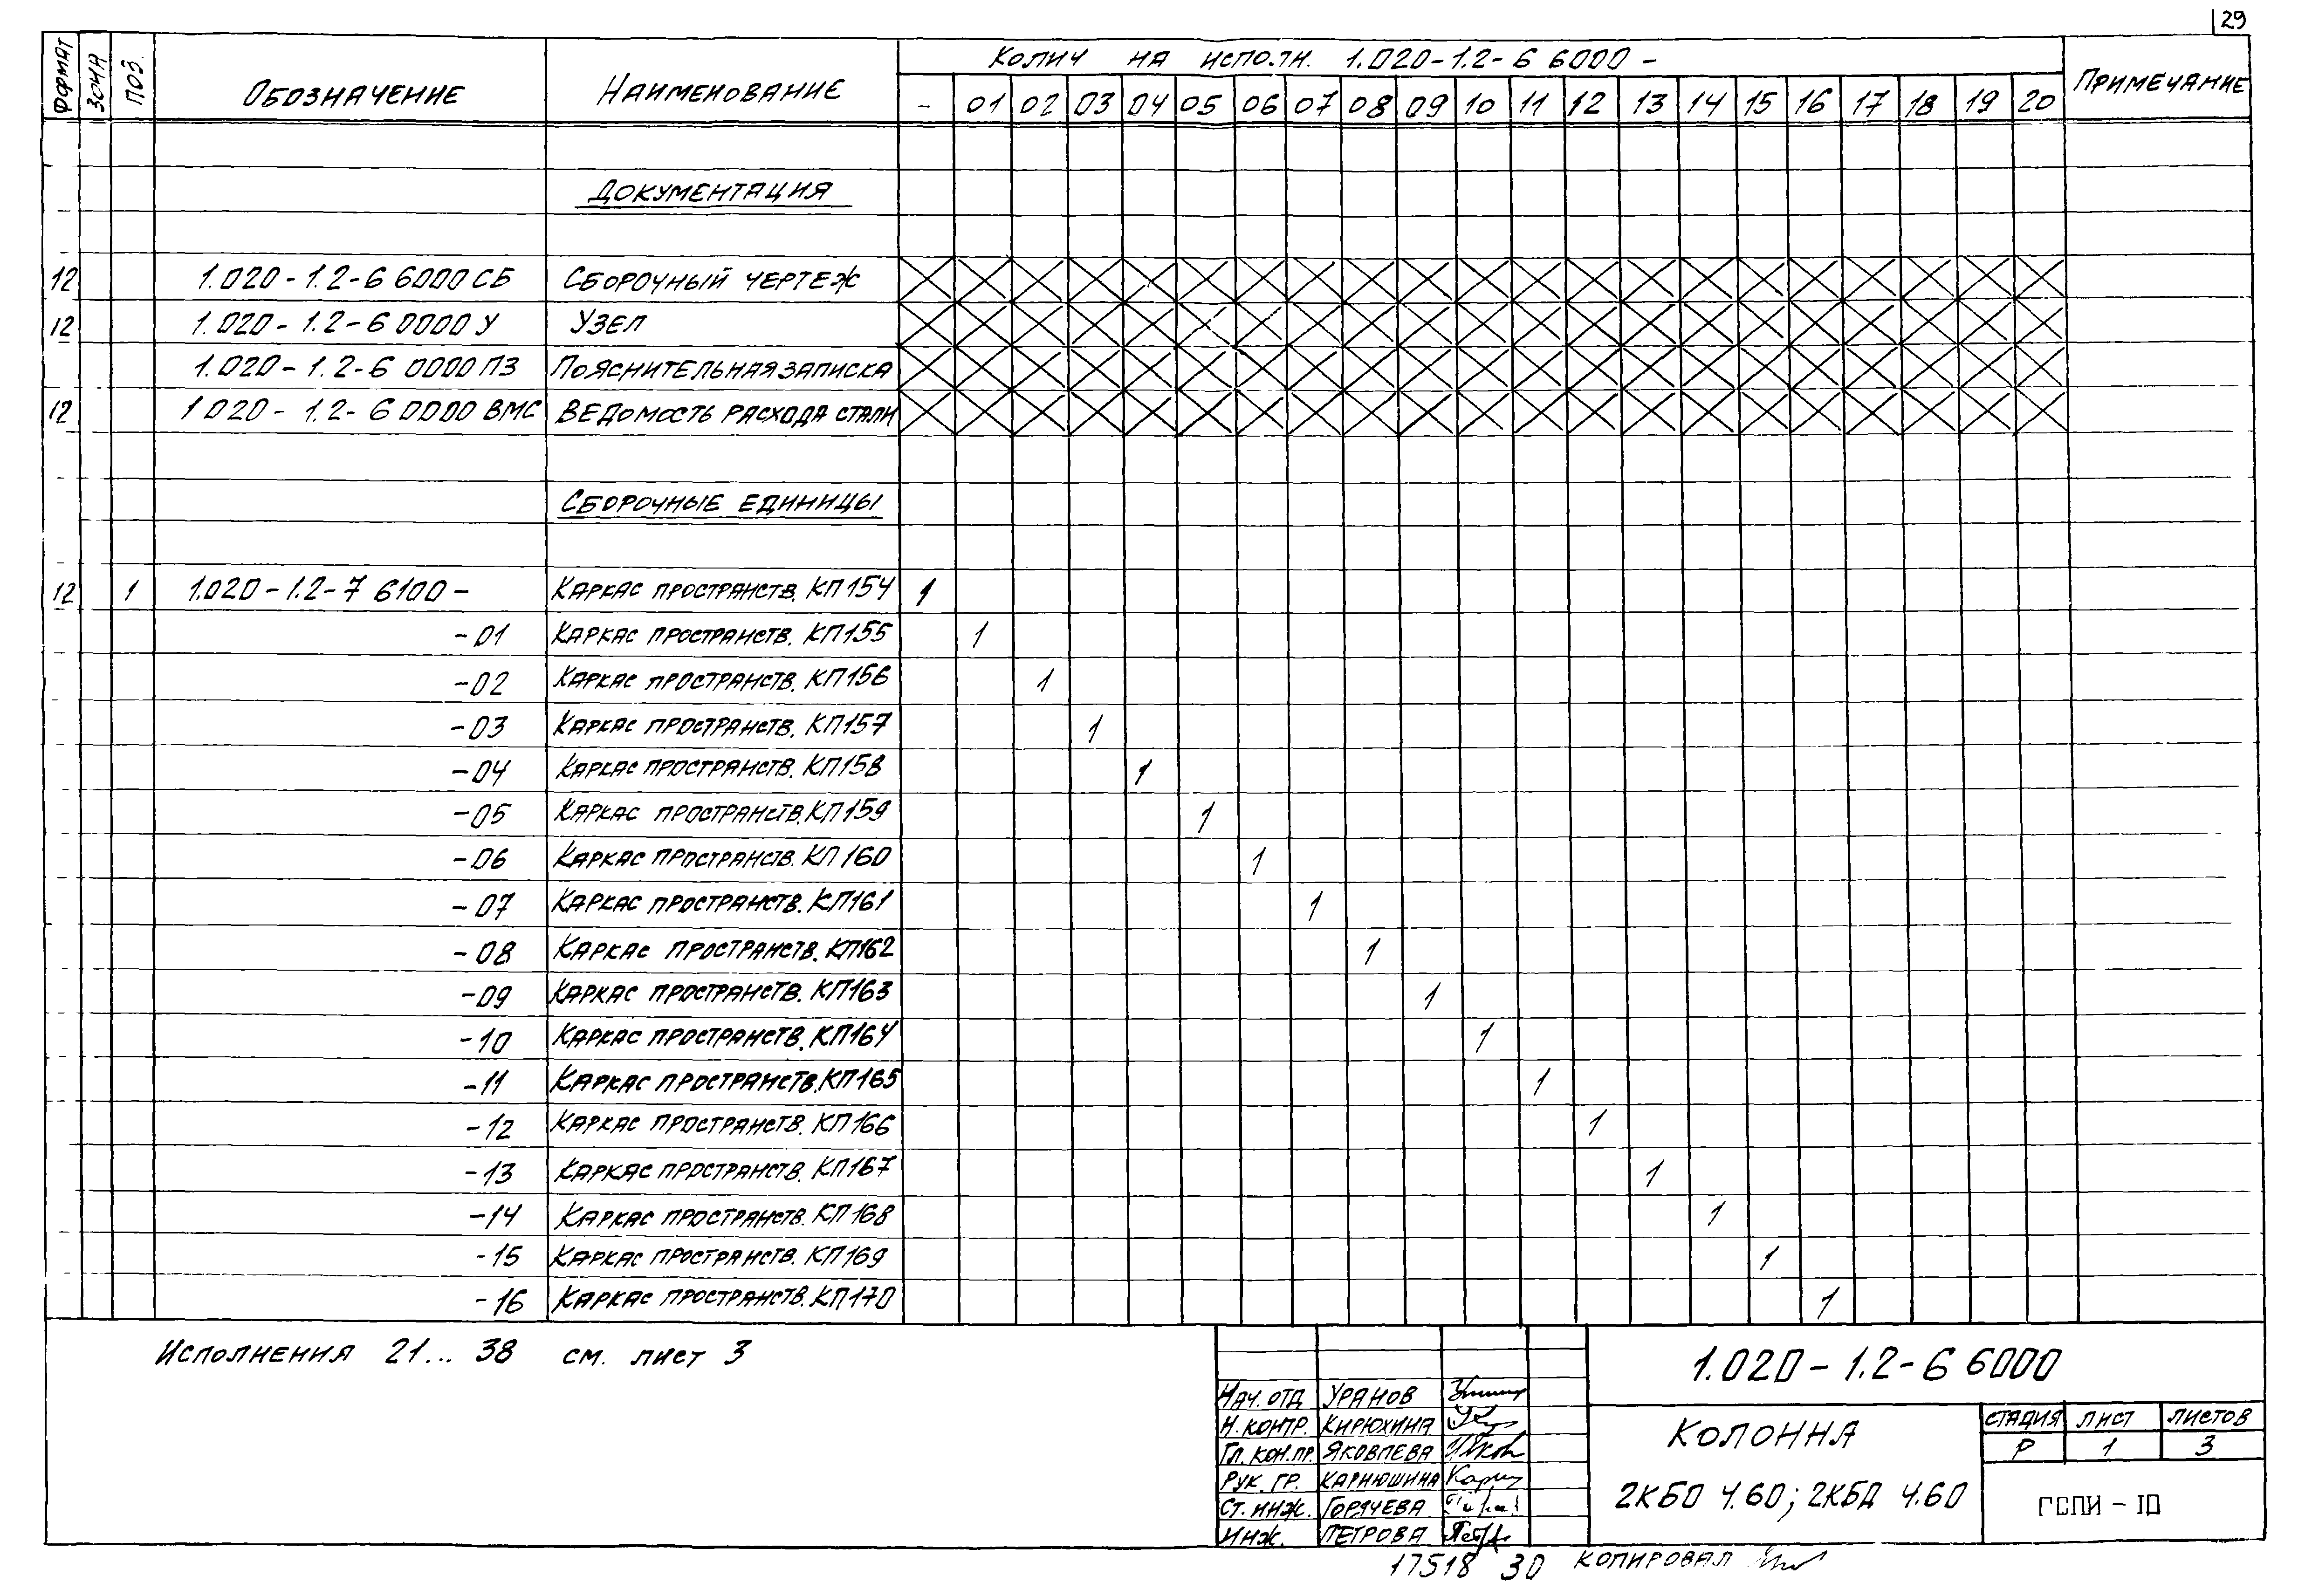 29
ФОРМАТ ЗОНА ПОЗ. ОБОЗНАЧЕНИЕ НАИМЕНОВАНИЕ КОЛИЧ НА ИСПОЛН. 1.020-1.2-6 6000 - ПРИМЕЧАНИЕ
- 01 02 03 04 05 06 07 08 09 10 11 12 13 14 15 16 17 18 19 20
ДОКУМЕНТАЦИЯ
12 1.020-1.2-6 6000 СБ СБОРОЧНЫЙ ЧЕРТЕЖ
12 1.020-1.2-6 0000 У УЗЕЛ
1.020-1.2-6 0000 ПЗ ПОЯСНИТЕЛЬНАЯ ЗАПИСКА
12 1 020-1.2-6 0000 ВМС ВЕДОМОСТЬ РАСХОДА СТАЛИ
СБОРОЧНЫЕ ЕДИНИЦЫ
12 1 1.020-1.2-7 6100 - КАРКАС ПРОСТРАНСТВ. КП154 1
-01 КАРКАС ПРОСТРАНСТВ. КП155 1
-02 КАРКАС ПРОСТРАНСТВ. КП156 1
-03 КАРКАС ПРОСТРАНСТВ. КП157 1
-04 КАРКАС ПРОСТРАНСТВ. КП158 1
-05 КАРКАС ПРОСТРАНСТВ. КП159 1
-06 КАРКАС ПРОСТРАНСТВ. КП160 1
-07 КАРКАС ПРОСТРАНСТВ. КП161 1
-08 КАРКАС ПРОСТРАНСТВ. КП162 1
-09 КАРКАС ПРОСТРАНСТВ. КП163 1
-10 КАРКАС ПРОСТРАНСТВ. КП164 1
-11 КАРКАС ПРОСТРАНСТВ. КП165 1
-12 КАРКАС ПРОСТРАНСТВ. КП166 1
-13 КАРКАС ПРОСТРАНСТВ. КП167 1
-14 КАРКАС ПРОСТРАНСТВ. КП168 1
-15 КАРКАС ПРОСТРАНСТВ. КП169 1
-16 КАРКАС ПРОСТРАНСТВ. КП170 1
ИСПОЛНЕНИЯ 21... 38 СМ. ЛИСТ 3
1.020-1.2-6 6000
НАЧ. ОТД УРАНОВ
Н. КОНТР. КИРЮХИНА
ГЛ. КОН. ПР. ЯКОВЛЕВА
РУК. ГР. КАРНЮШИНА
СТ. ИНЖ. ГОРЯЧЕВА
ИНЖ. ПЕТРОВА
КОЛОННА
2КБО 4.60; 2КБД 4.60
СТАДИЯ ЛИСТ ЛИСТОВ
Р 1 3
ГСПИ - 10
17518 30 КОПИРОВАЛ